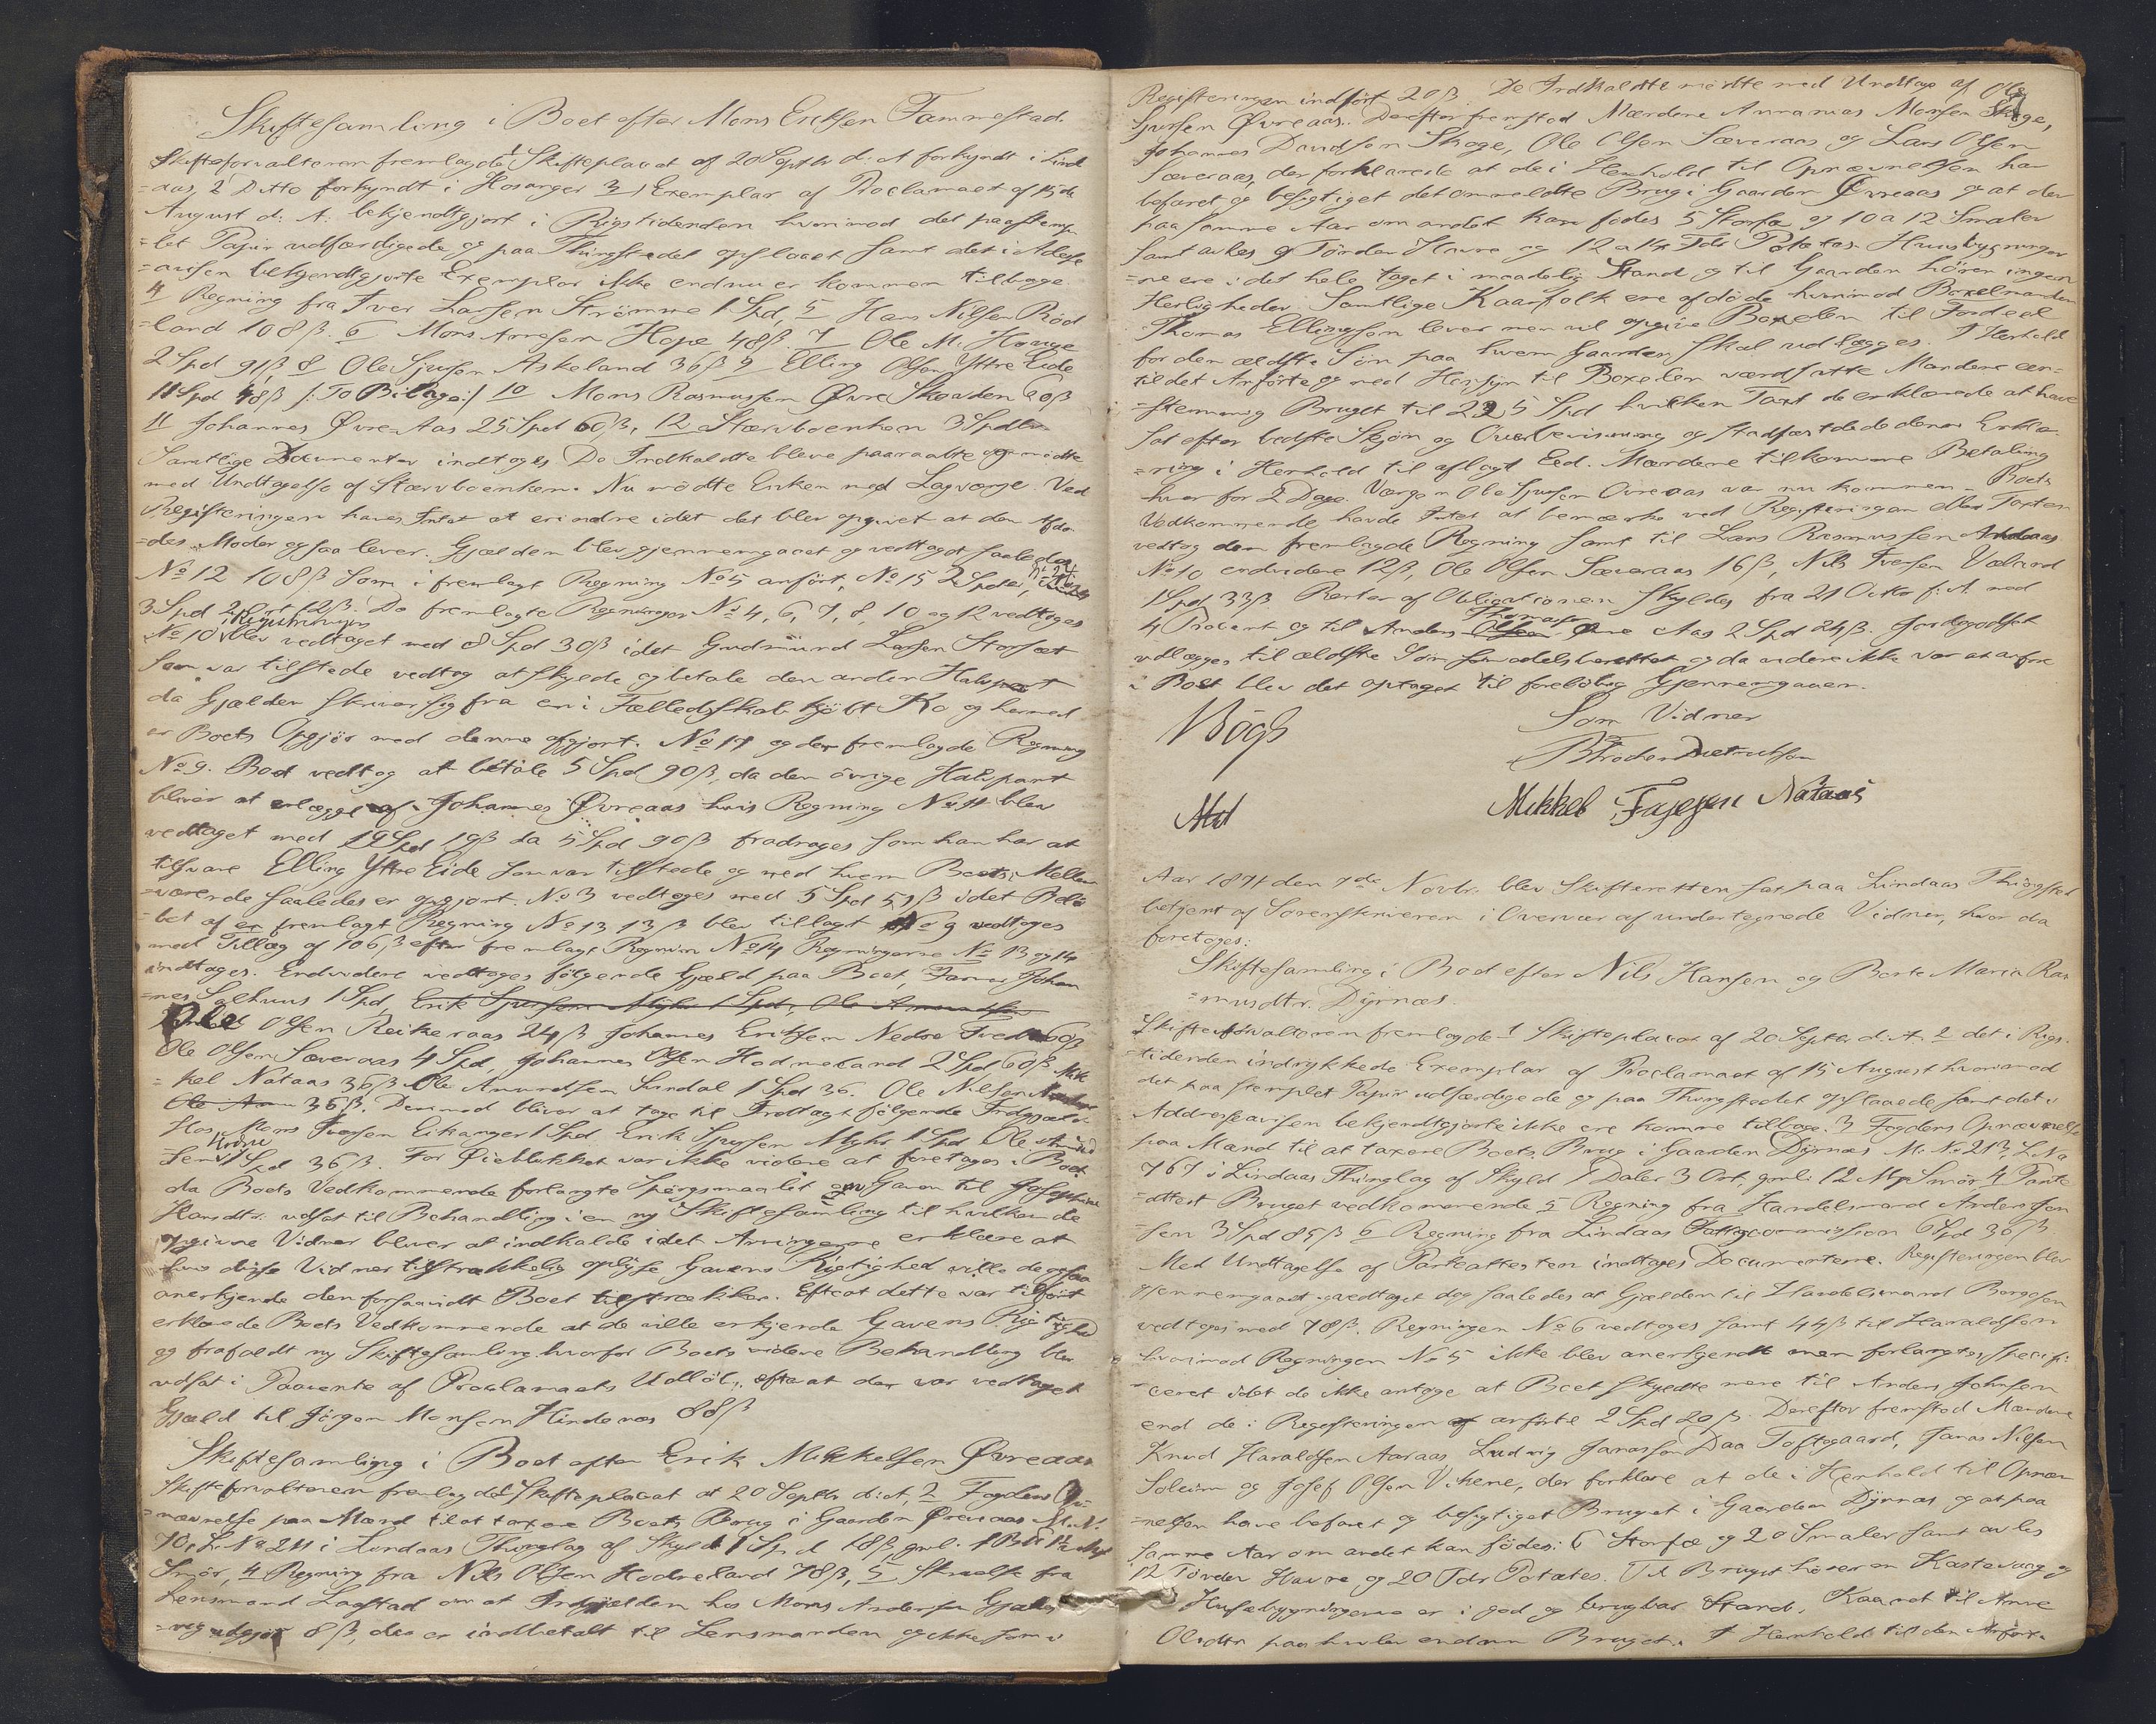 Skiftesamling i Boet efter Mons Eriksen Fammestad
Skifteforvalteren fremlagde 1 Skifteplacat af 20 Septbr d: A forkyndt i Lind
=aas, 2 Ditto forkyndt i Hosanger 3 1 Exemplar af Proclamaet af 15de
August d: A: bekjendtgjort i Rigstidenden hvorimod det paa stemp-
=let Papir udfærdigede og paa Thingstedet opslaaet samt det i Adresse
=avisen bekjendtgjorte Exemplar ikke endnu er kommen tilbage.
4 Regning fra Iver Larsen Strømme 1 Spd, 5 Hans Nilsen Rød
=land 108 ß. 6 Mons Arnesen Hope 48 ß. 7 Ole M. Hauge
2 Spd 91 ß 8 Ole Sjursen Askeland 36 ß 9 Elling Olsen Yttre Eide
11 Spd 48 ß /: To Bilage :/ 10 Mons Rasmussen Øvre Skodden 60 ß
11 Johannes Øvre Aas 25 Spd 60 ß, 12 Stervboenken 3 Spdlr
Samtlige Documenter indtoges De Indkaldte bleve paaraabte og mødte
med Undtagelse af Stervboenken. Nu mødte Enken med Lagværge. Ved
Registeringen haves Intet at erindre idet det blev opgivet at den Afdø-
=des Moder ogsaa lever. Gjælden blev gjennemgaaet og vedtaget saaledes
No 12 108 ß som i fremlagt Regning No 5 anført, No 15 2 Spdlr,
3 Spd 2 Ort 12 ß. De fremlagte Regninger No 4, 6, 7, 8, 10 og 12 vedtoges
No 10 i Registeringen blev vedtaget med 8 Spd 30 ß idet Gudmund Larsen Storset
som var tilstede vedtog at skylde og betale den anden Halvpart
da Gjælden skriver sig fra en i Fælledsskab kjøbt Ko og hermed
er Boets Opgjør med denne afgjort. No 11 og den fremlagde Regning
No 9. Boet vedtog at betale 5 Spd 90 ß, da den øvrige Halvpart
bliver at erlægge af Johannes Øvreaas hvis Regning No 11 blev
vedtaget med 19 Spd 19 ß da 5 Spd 90 ß fradrages som han har at
tilsvare Elling Yttre Eide som var tilstede og med hvem Boets Mellem
=værende saaledes er opgjort. No 3 vedtoges med 5 Spd 59 ß idet Belø
=bet af en fremlagt Regning No 13 13 ß blev tillagt No 9 vedtoges
med Tillæg af 106 ß efter fremlagt Regning No 14 Regningerne No 13 og 14
indtoges. Endvidere vedtoges følgende Gjæld paa Boet, Johan
=nes Solhuus 1 Spd, Erik Sjursen Myhr 1 Spd, Ole Amundsen
Ole Olsen Reikeraas 24 ß Johannes Eriksen Nedre 60 ß
Ole Olsen Sæveraas 4 Spd, Johannes Olsen Hodneland 2 Spd 60 ß Mik
=kel Nataas 36 ß Ole Amundsen Lindal 1 Spd 36. Ole Nilsen
36 ß. Derimod bliver at tage til Indtægt følgende Indgjæld
Hos Mons Iversen Eikanger 1 Spd Erik Sjursen Myhr 1 Spd Ole Amund
sen 1 Spd 36 ß. For Øieblikket var ikke videre at foretages i Boet
da Boets Vedkommende forlangte Spørgsmaalet om Gaven til Josephine
Hansdtr. udsat til Behandling i en ny Skiftesamling til hvilken de
opgivne Vidner bliver at indkalde idet Arvingerne erklære at
hvis disse Vidner tilstrækkelig oplyse Gavens Rigtighed ville de ogsaa
anerkjende den forsaavidt Boet tilstrækker. Efterat dette var tilført
erklærede Boets Vedkommende at de ville erkjende Gavens Rigtighed
og frafaldt ny Skiftesamling hvorfor Boets videre Behandling blev
udsat i Paavente af Proclamaets Udløb, efterat der var vedtaget
Gjæld til Jørgen Monsen Hindenæs 88 ß
Skiftesamling i Boet efter Erik Mikkelsen Øvreaas
Skifteforvalteren fremlagde 1 Skifteplacat af 20 Septbr d: A:, 2 Fogdens Op-
=nævnelse paa Mænd til at taxere Boets Brug i Gaarden Øvreaas M. N.
70, L. No 211 i Lindaas Thinglag af Skyld 1 Spd 18 ß gml.
Smør, 4 Regning fra Nils Olsen Hodneland 78 ß, 5 Skrivelse fra
Lensmand Laastad om at Indgjælden hos Mons Andersen Gjelle
=vig udgjør 8 ß, der er indbetalt til Lensmanden og ikke som i
Registeringen indført 20 ß. De Indkaldte mødte med Undtage af Ole
Sjursen Øvreaas. Derefter fremstod Mændene Annanias Monsen Skoge,
Johannes Davidsen Skoge, Ole Olsen Sæveraas og Lars Olsen
Sæveraas, der forklarede at de i Henhold til Opnævnelsen har
befaret og besigtiget det ommeldte Brug i Gaarden Øvreaas og at der
paa samme Aar om andet kan fødes 5 Storfæ og 10 a 12 Smaler
samt avles 9 Tønder Havre og 12 a 14 Tdr Potetes. Huusbygninger
=ne ere i det hele taget i maadelig Stand og til Gaarden hører ingen
Herligheder. Samtlige Kaarfolk ere afdøde hvorimod Boxelmanden
Thomas Ellingsen lever men vil opgive Boxelen til Fordeel
for den ældste Søn paa hvem Gaarden skal udlægges. I Henhold
til det Anførte og med Hensyn til Boxelen værdsatte Mændene een-
=stemmig Bruget til 225 Spd hvilken Taxt de erklærede at have
sat efter bedste Skjøn og Overbeviisning og stadfæstede denne Erklæ-
=ring i Henhold til aflagt Eed. Mændene tilkomme Betaling
hver for 2 Dage. Værgen Ole Sjursen Øvreaas var nu kommen – Boets
Vedkommende havde Intet at bemærke ved Registeringen eller Taxten
vedtog den fremlagde Regning samt til Lars Rasmussen
No 10 endvidere 12 ß, Ole Olsen Sæveraas 16 ß, Nils Iversen Væland
1 Spd 33 ß. Renter af Obligationen skyldes fra 21 Octbr f: A. med
4 Procent og til Anders Thomassen Øvre Aas 2 Spd 24 ß. Jordegodset
udlægges til ældste Søn som odelsberettet og da videre ikke var at anføre
i Boet blev det optaget til foreløbig Gjennemgaaen.
Bøgh
Som Vidner
Mikkel Nataas
Aar 1874 den 7de Novbr. blev Skifteretten sat paa Lindaas Thingsted
betjent af Sorenskriveren i Overvær af undertegnede Vidner, hvor da
foretoges:
Skiftesamling i Boet efter Nils Hansen og Berte Marie Ras
=musdtr. Dyrnæs.
Skifteforvalteren fremlagde 1 Skifteplacat af 20 Septbr d: A. 2 det i Rigs-
tidenden indrykkede Exemplar af Proclamaet af 15 August hvorimod
det paa stemplet Papir udfærdigede og paa Thingstedet opslaaede samt det i
Addresseavisen bekjendtgjorte ikke ere komme tilbage. 3 Fogdens Opnævnelse
paa Mænd til at taxere Boets Brug i Gaarden Dyrnæs M. No 213, L. No
767 i Lindaas Thinglag af Skyld 1 Daler 3 Ort, gml: 12 Mrk Smør, 4 Pante
=attest Bruget vedkommende 5 Regning fra Handelsmand Anders Jon
sen 3 Spd 85 ß 6 Regning fra Lindaas Fattigcommission 6 Spd 36 ß
Med Undtagelse af Panteattesten indtoges Documenterne. Registeringen blev
gjennemgaaet og vedtaget dog saaledes at Gjælden til Handelsmand Borgesen
vedtoges med 78 ß. Regningen No 6 vedtoges samt 44 ß til Haraldsen
hvorimod Regningen No 5 ikke blev anerkjendt men forlangtes specifi
=ceret idet de ikke antoge at Boet skyldte mere til Anders Johnsen
end de i Registeringen anførte 2 Spd 20 ß. Derefter fremstod Mændene
Knud Haraldsen Aaraas, Ludvig Janassen Daa Toftegaard, Janas Nilsen
Soleim og Josef Olsen Vikene, der forklare at de i Henhold til Opnæv
=nelsen have befaret og besigtiget Bruget i Gaarden Dyrnæs og at paa
samme Aar om andet kan fødes: 6 Storfæ og 20 Smaler samt avles
12 Tønder Havre og 20 Tdr Potates. Til Bruget hører en Kastevaag og
Husebygningerne er i god og brugbar Stand. Kaaret til Anne
Olsdtr paahviler endnu Bruget. I Henhold til den Anfør-